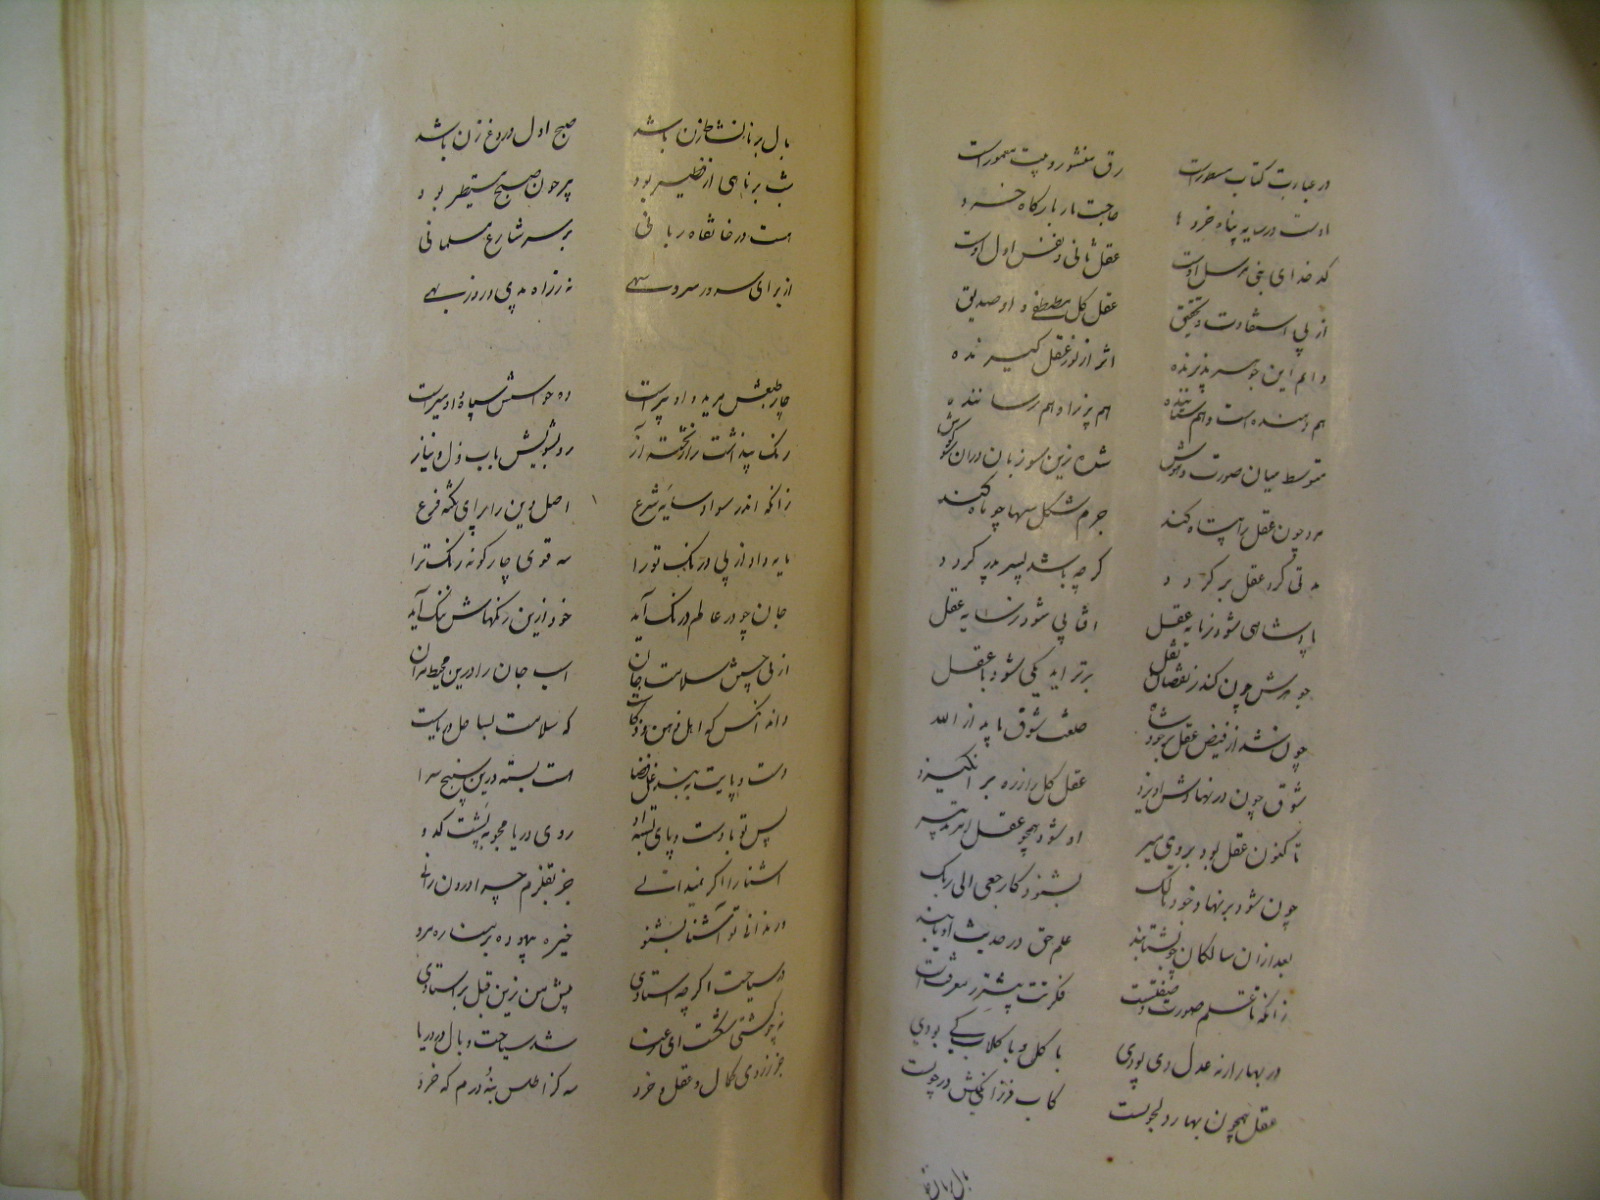 در عبارت کتاب مسطورست رق منشور و بیت معمورست
اوست در سایه پناه خرد حاجت بار بارگاه خرد
کدخدای بنی مرسل اوست عقل ثانی و نفس اول اوست
از پی استفادت و تحقیق عقل کل مصطفی و او صدیق
دایم این جوهر پذیرنده اثر از نور عقل گیرنده
هم دهنده است و هم ستاننده هم پزیرا و هم رساننده
متوسط میان صورت و هوش شده زین سو زبان وزان سو گوش
مرد چون عقل را پناه کند جرم شکل سها چو ماه کند
مدتی گرد عقل بر گردد گرچه باشد پسر پدر گردد
پادشاهی شود ز مایه عقل آفتابی شود ز سایه عقل
جوهرش چون کند ز نقصان نقل برتر آید یکی شود با عقل
چون شد از فیض عقل برخور شاه صفت شوق یابد از الله
شوق چون در نهادش آویزد عقل کل را ز ره برانگیزد
تا کنون عقل بود بر وی میر او شود همچو عقل امر پذیر
چون شود بر نهاد خود مالک بشنود که ارجعی الی ربک
بعد از آن سالکان چو بشتابند علم حق در حدیث او یابند
زانکه تا قسم صورت و صفتست فکرتت پیشتر ز معرفتست
در بهار ار نه عدل دی بودی با گل و با گلاب کی بودی
عقل همچون بهار دلجویست کاب فرزانگیش در جویست
بال برنا
بال برنا نشاط زن باشد صبح اول دروغ زن باشد
شب برناهی از فطیر بود پیر چون صبح مستطیر بود
هست در خانقاه ربانی بر سر شارع مسلمانی
از برای سه در سرو سهی نه ز زاد بدی و روز بهی
چار طبعش مرید و او پیرست ده حواسش سپاه و او میرست
رنگ بپذاشت را نخسته آز روشویش بآب ذل و نیاز
زانکه اندر سواد سایه شرع اصل دین را برای نکته فرع
مایه داد از پی درنگ تو را سه قوی چار گونه رنگ ترا
جان چو در عالم درنگ آید خود ازین رنگهاش ننگ آید
از پی جستن سلامت جان اسب جان را درین محیط مران
داند آنکس که اهل ذهن و ذکاست که سلامت بساحل دریاست
دست و پایت به بند غل قضا است بسته درین سپنج سرا
پس تو با دست و پای بسته او روی دریا مجو به پشت کدو
آشنا را اگر نمیدانی جز بقلزم چه اندرون رانی
ور ندانی تو آشنا بشنو خیره بیهوده بر بسیاره مرو
در سباحت اگر چه استادی پیش من زین قبل بر استادی
نه چو کشتی شکست ای رعنا شد سباحت وبال در دریا
جز ز روی کمال و عقل و خرد سه گز اطلس به نه درم که خرد